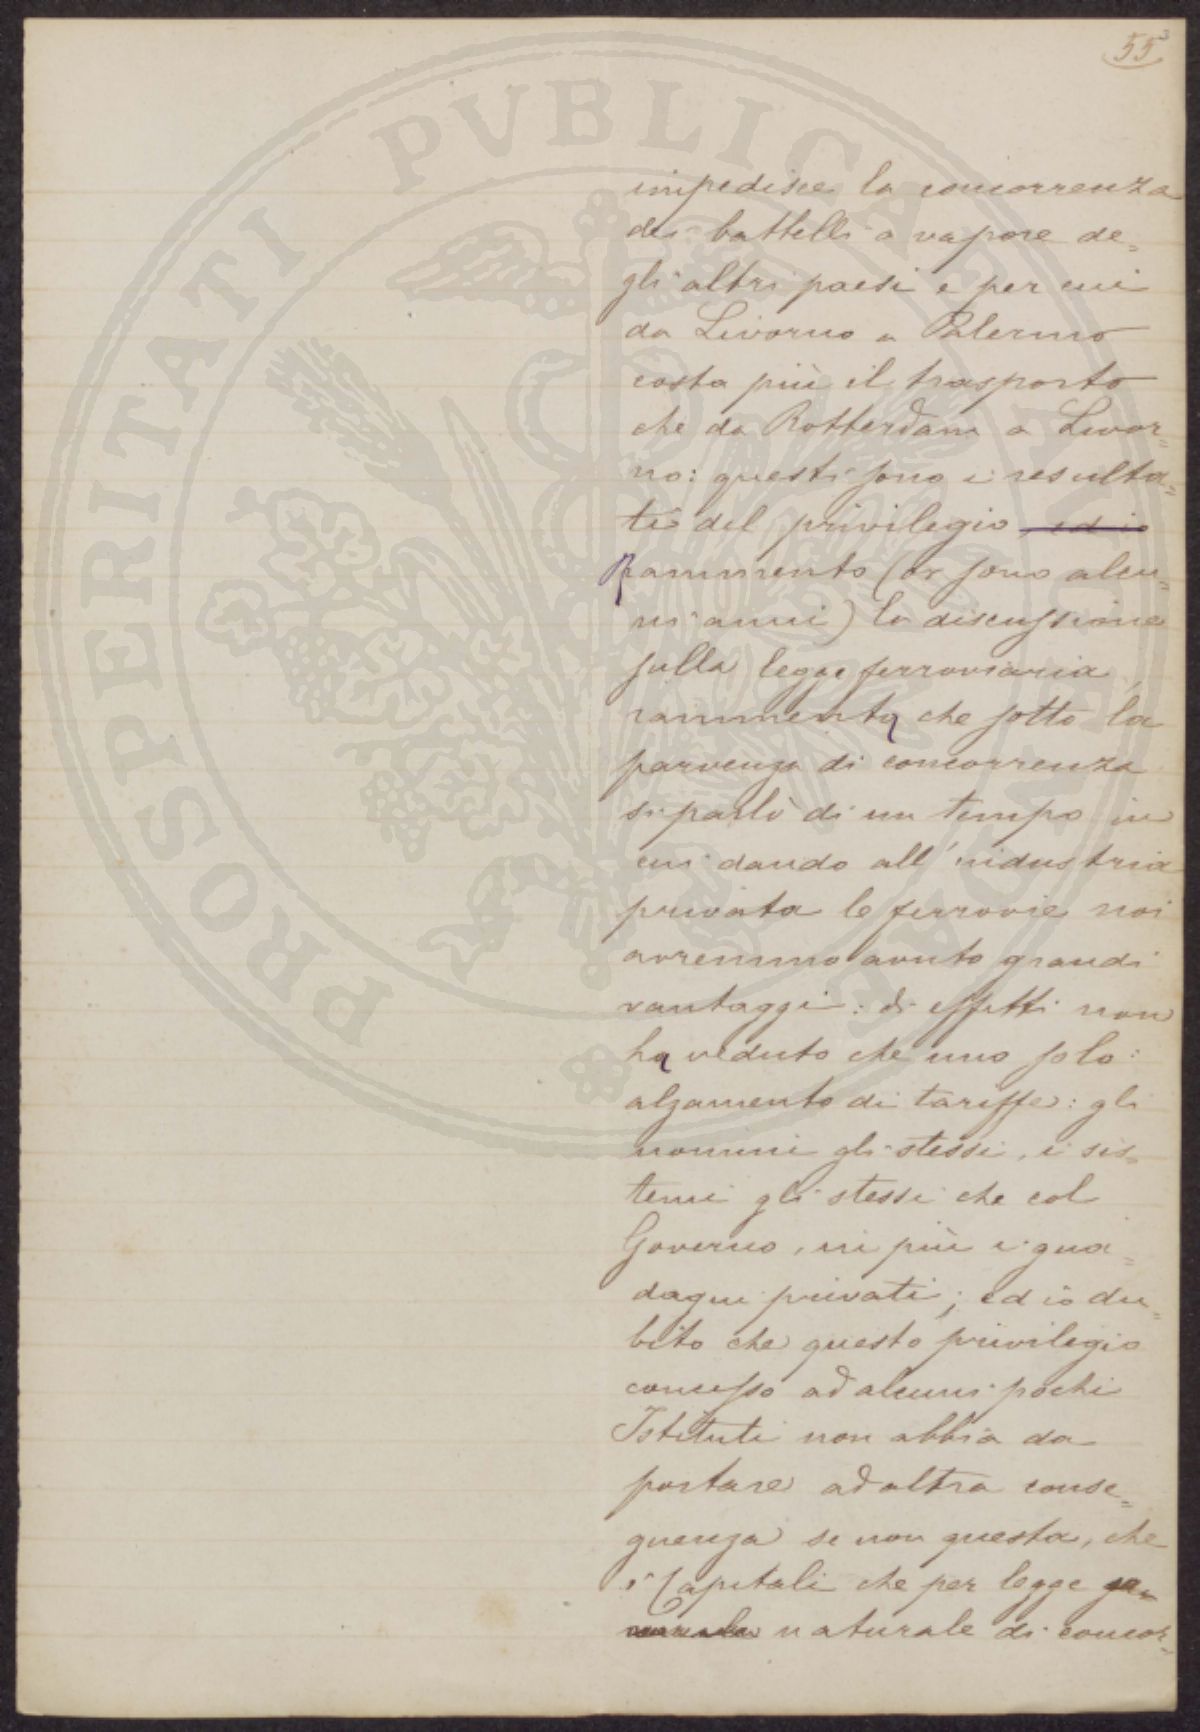 55
impedisce la concorrenza
dei battelli a vapore de=
gli altri paesi e per cui
da Livorno a Palermo
costa più il trasporto
che da Rotterdam a Livor=
no: questi sono i resulta=
ti del privilegio ed io
Rammento (or sono alcu=
ni anni) la discussione
sulla legge ferroviaria,
rammenta che sotto la
parvenza di concorrenza
si parlò di un tempo in
cui dando all'industria
privata le ferrovie noi
avremmo avuto grandi
vantaggi: di effetti non
ha veduto che uno solo:
alzamento di tariffe: gli
uomini gli stessi, i sis=
temi gli stessi che col
Governo, in più i gua=
dagni privati; ed io du=
bito che questo privilegio
concesso ad alcuni pochi
Istituti non abbia da
portare ad altra conse=
guenza se non questa, che
i Capitali che per legge
naturale di concor=
PROSPERITATI PVBLICAE AVGENDAE